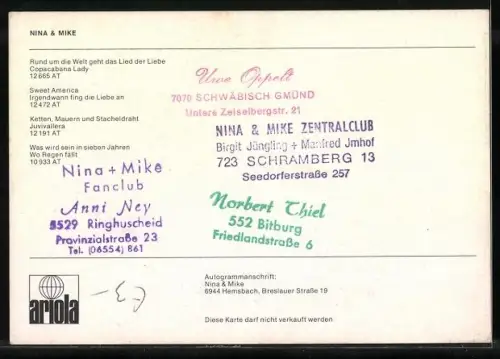 NINA & MIKE
Rund um die Welt geht das Lied der Liebe
Copacabana Lady
12 665 AT
Sweet America
Irgendwann fing die Liebe an
12 472 AT
Ketten, Mauern und Stacheldraht
Juvivallera
12 191 AT
Was wird sein in sieben Jahren
Wo Regen fällt
10 933 AT
Uwe Oppelt
7070 SCHWÄBISCH GMÜND
Untere Zeiselbergstr. 21
NINA & MIKE ZENTRALCLUB
Birgit Jüngling + Manfred Jmhof
723 SCHRAMBERG 13
Seedorferstraße 257
Nina + Mike
Fanclub
Anni Ney
5529 Ringhuscheid
Provinzialstraße 23
Tel. (06554) 861
Norbert Thiel
552 Bitburg
Friedlandstraße 6
ariola
Autogrammanschrift:
Nina & Mike
6944 Hemsbach, Breslauer Straße 19
Diese Karte darf nicht verkauft werden.